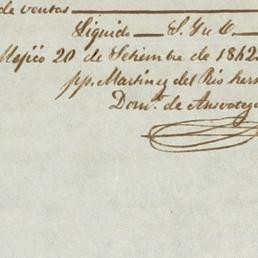 de ventas
Líquido — S. Y u O. —
Mejico 20 de Setiembre de 1842
pp. Martinez del Rio herm
Dom.º de Ansoateg